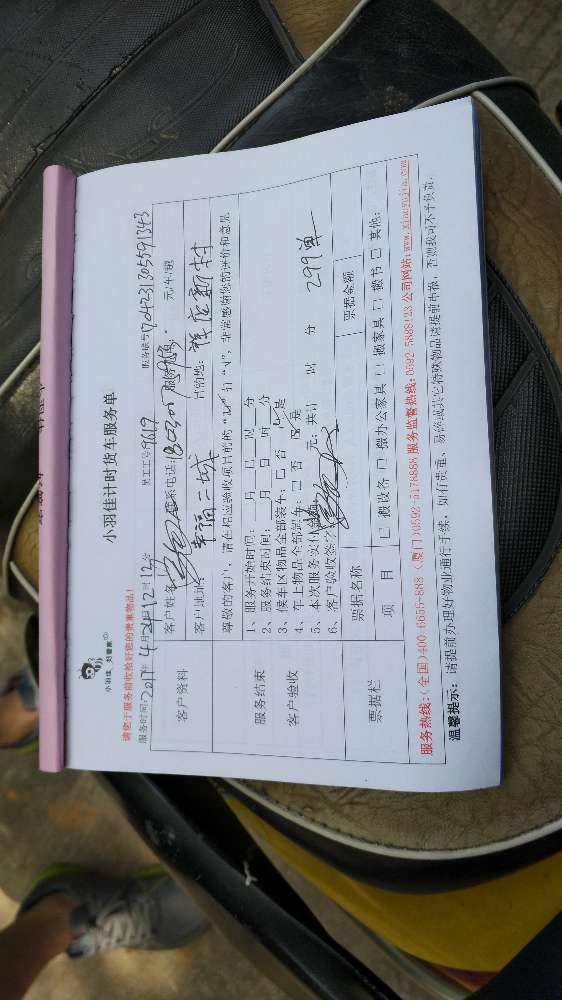 小羽佳计时货车服务单
小羽佳 好管家
请您于服务前收捡好您的贵重物品!
服务时间:2017年4月24日12时12分 员工工号:7619 服务编号:
客户资料
客户姓名 联系电话: 服务标准: 元/车/趟
客户地址 幸福二城 目的地:
尊敬的客户,请在相应验收项目前的“ ”打“√”,非常感谢您的评价和意见
服务结束
客户验收
1、服务开始时间: 月 日 时 分
2、服务结束时间: 月 日 时 分
3、候车区物品全部装车:□ 否 是
4、车上物品全部卸车:□ 否 是
5、本次服务实付金额 元;共计 时 分 299
6、客户验收签字
票据栏
票据名称 票据金额
项 目 □ 搬设备 □ 搬办公家具 □ 搬家具 □ 搬书 □ 其他:
服务热线:(全国)400-6655-888 (厦门)0592-5178888 服务监督热线:0592-5888123 公司网站:www.xiaoyujia.com
温馨提示:请提前办理好物业通行手续,如有贵重、易碎或其它特殊物品请提前声明,否则我司不予负责。